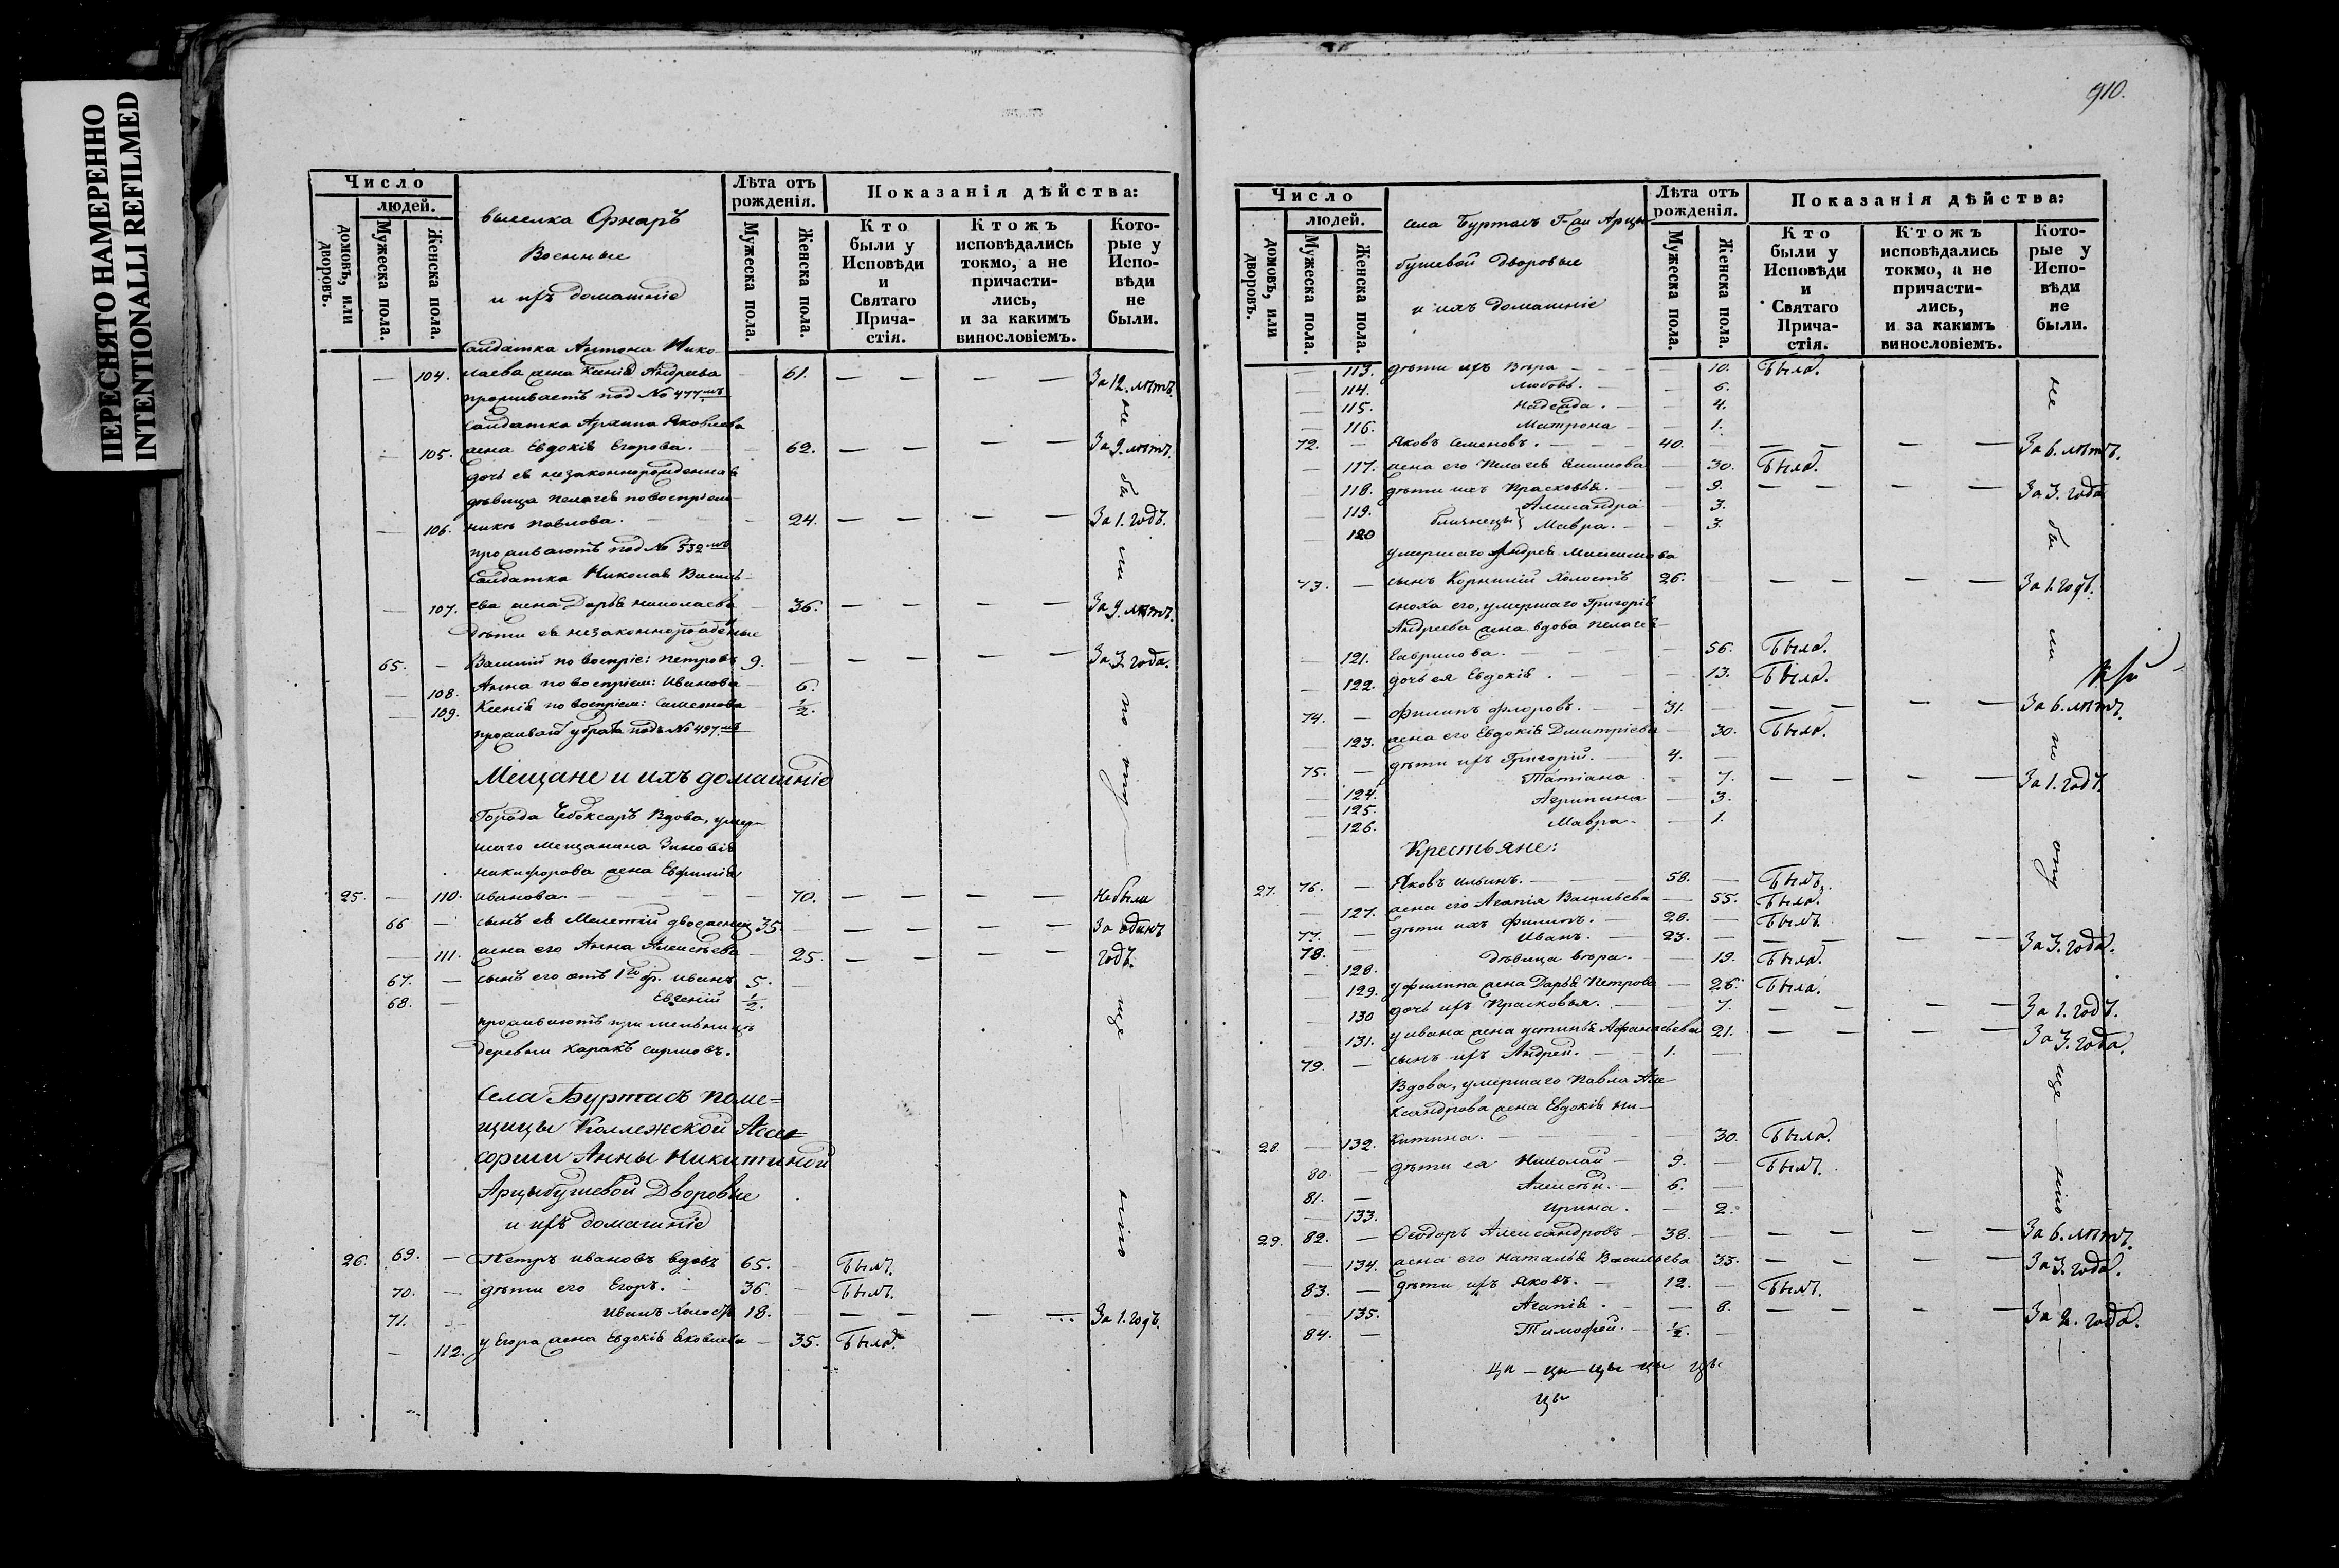 ПЕРЕСНЯТО НАМЕРЕННО
INTENTIONALLI REFILMED
Число
людей.
домовъ, или дворовъ.
Мужеска пола.
Женска пола.
Военные
и ихъ домашніе
Лѣта отъ рожденія.
Мужеска пола.
Женска пола.
Показанія дѣйства:
Кто были у Исповѣди и Святаго Прича- стія.
Ктожъ исповѣдались токмо, а не причасти- лись, и за какимъ винословіемъ.
Кото- рые у Испо- вѣди не были.
Солдатка Антона Нико-
104. лаева жена Ксенія Андреева 61. За 12. лѣтъ.
проживаетъ под № 477мъ
Солдатка Архипа Яковлева
105. жена Евдокія Егорова. 62. За 9. лѣтъ.
дочь ея незаконнорожденная
дѣвица Пелагея по воспріем-
106. никѣ Павлова. 24. За 1. годъ.
проживаютъ под № 532мъ
Солдатка Николая Василь-
107. ева жена Дарья Николаева 36. За 9. лѣтъ.
дѣти ея незаконнорожденые
65. Василій по воспріе: Петровъ 9. За 3. года.
108. Анна по воспріем: Иванова 6.
109. Ксенія по воспріем: Симеонова 1/2.
прожива у брата подъ № 497мъ
не бы ли по ому
Мещане и ихъ домашніе
Города Чебоксаръ Вдова, умер-
шаго Мещанина Зиновія
Никифорова жена Евфимія
25. 110. Иванова. 70. Не были
66 сынъ ея Мелетій двоеженец 35. За одинъ
111. жена его Анна Алексѣева 25. годъ.
67. сынъ его отъ 1го бр. Иванъ 5.
68. Евгеній 1/2.
проживаютъ при мельницѣ
деревни Каракъ сирмовъ.
Села Буртасъ Поме=
щицы Коллежской Ассе=
сорши Анны Никитиной
Арцыбушевой Дворовые
и ихъ домашніе
26. 69. Петръ Ивановъ вдовъ 65. Былъ.
70. дѣти его Егоръ. 36. Былъ.
71. Иванъ холостъ 18. За 1. годъ.
112. у Егора жена Евдокія Яковлева 35. Была.
910.
Число
людей.
домовъ, или дворовъ.
Мужеска пола.
Женска пола.
села Буртасъ Г-жи Арцы-
бушевой Дворовые
и ихъ домашніе
Лѣта отъ рожденія.
Мужеска пола.
Женска пола.
Показанія дѣйства:
Кто были у Исповѣди и Святаго Прича- стія.
Ктожъ исповѣдались токмо, а не причасти- лись, и за какимъ винословіемъ.
Кото- рые у Испо- вѣди не были.
113. дѣти ихъ Вѣра 10. Была.
114. Любовь. 6.
115. Надежда. 4.
116. Матрона 1.
72. Яковъ Семеновъ. 40. За 6. лѣтъ.
117. жена его Пелагея 30. Была.
118. дѣти ихъ Прасковья. 9. За 3. года
119. Александра 3.
120 близнецы Мавра. 3.
умершаго Андрея Максимова
73. сынъ Корнилій холостъ 26. За 1. годъ.
сноха его, умершаго Григорія
Андреева жена вдова Пелагея
121. Гаврилова. 56. Была.
122. дочь ея Евдокія 13. Была.
74. Филипъ Флоровъ. 31. За 6. лѣтъ.
123. жена его Евдокія Дмитріева 30. Была.
75. дѣти ихъ Григорій. 4.
124. Татіана 7. За 1. годъ.
125. Агрипина 3.
126. Мавра. 1.
Крестьяне:
27. 76. Яковъ Ильинъ. 58. Былъ.
127. жена его Агапія Васильева 55. Была.
77. дѣти ихъ Филипъ. 28. Былъ.
78. Иванъ. 23. За 3. года.
128. дѣвица 19. Была.
129. у Филипа жена Дарья Петрова 26. Была.
130 дочь ихъ Прасковья. 7. За 1. годъ.
131. у Ивана жена Устинья Афанасьева 21. За 3. года.
79. сынъ ихъ Андрей. 1.
Вдова, умершаго Павла Але-
ксандрова жена Евдокія Ни-
28. 132. китина. 30. Была.
80. дѣти ея Николай 9. Былъ.
81. Алексѣй. 6.
133. Ирина. 2.
29. 82. Ѳеодоръ Александровъ 38. За 6. лѣтъ.
134. жена его Наталья Васильева 33. За 3. года.
83. дѣти ихъ Яковъ. 12. Былъ.
135. Агапія. 8. За 2. года.
84. Тимофей. 1/2.
не бы ли по ому
цы – цы – цы – цы цы
цы